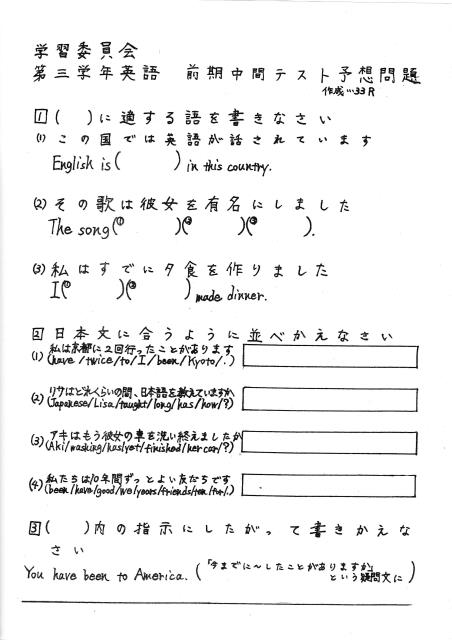 学習委員会
第三学年英語 前期中間テスト予想問題
作成…33R
1 ( )に適する語を書きなさい
(1) この国では英語が話されています
English is ( ) in this country.
(2) その歌は彼女を有名にしました
The song (① )(② )(③ ).
(3) 私はすでに夕食を作りました
I (① )(② ) made dinner.
2 日本文に合うように並べかえなさい
(1) 私は京都に2回行ったことがあります
(have/twice/to/I/been/Kyoto/.)
(2) リサはどれくらいの間、日本語を教えていますか
(Japanese/Lisa/taught/long/has/how/?)
(3) アキはもう彼女の車を洗い終えましたか
(Aki/washing/has/yet/finished/her car/?)
(4) 私たちは10年間ずっとよい友だちです
(been/have/good/we/years/friends/ten/for/.)
3 ( )内の指示にしたがって書きかえな
さい
You have been to America. (「今までに〜したことがありますか」
という疑問文に)